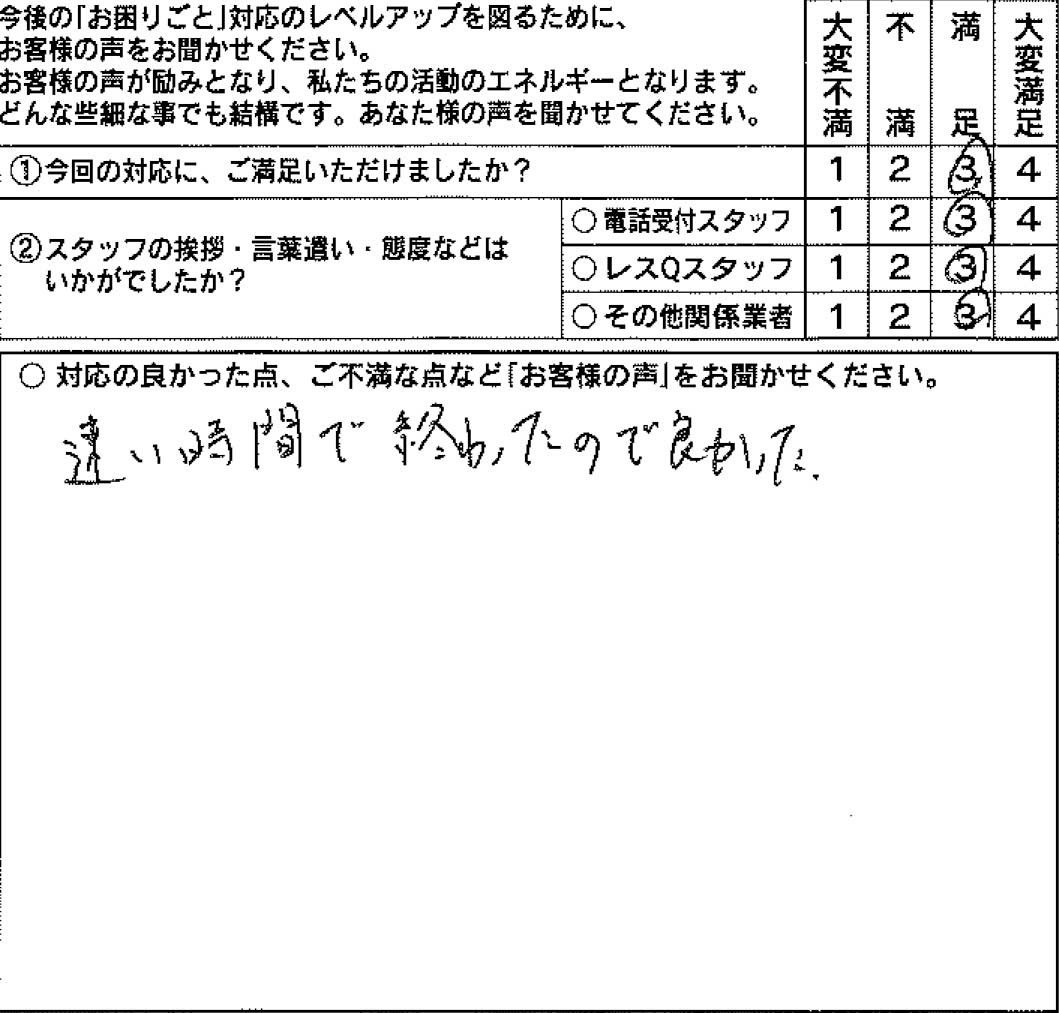 今後の「お困りごと」対応のレベルアップを図るために、
お客様の声をお聞かせください。
お客様の声が励みとなり、私たちの活動のエネルギーとなります。
どんな些細な事でも結構です。あなた様の声を聞かせてください。
大変不満 不満 満足 大変満足
①今回の対応に、ご満足いただけましたか？ 1 2 3 4
②スタッフの挨拶・言葉遣い・態度などは
いかがでしたか？
○電話受付スタッフ 1 2 3 4
○レスQスタッフ 1 2 3 4
○その他関係業者 1 2 3 4
○ 対応の良かった点、ご不満な点など「お客様の声」をお聞かせください。
速い時間で終わったので良かった.